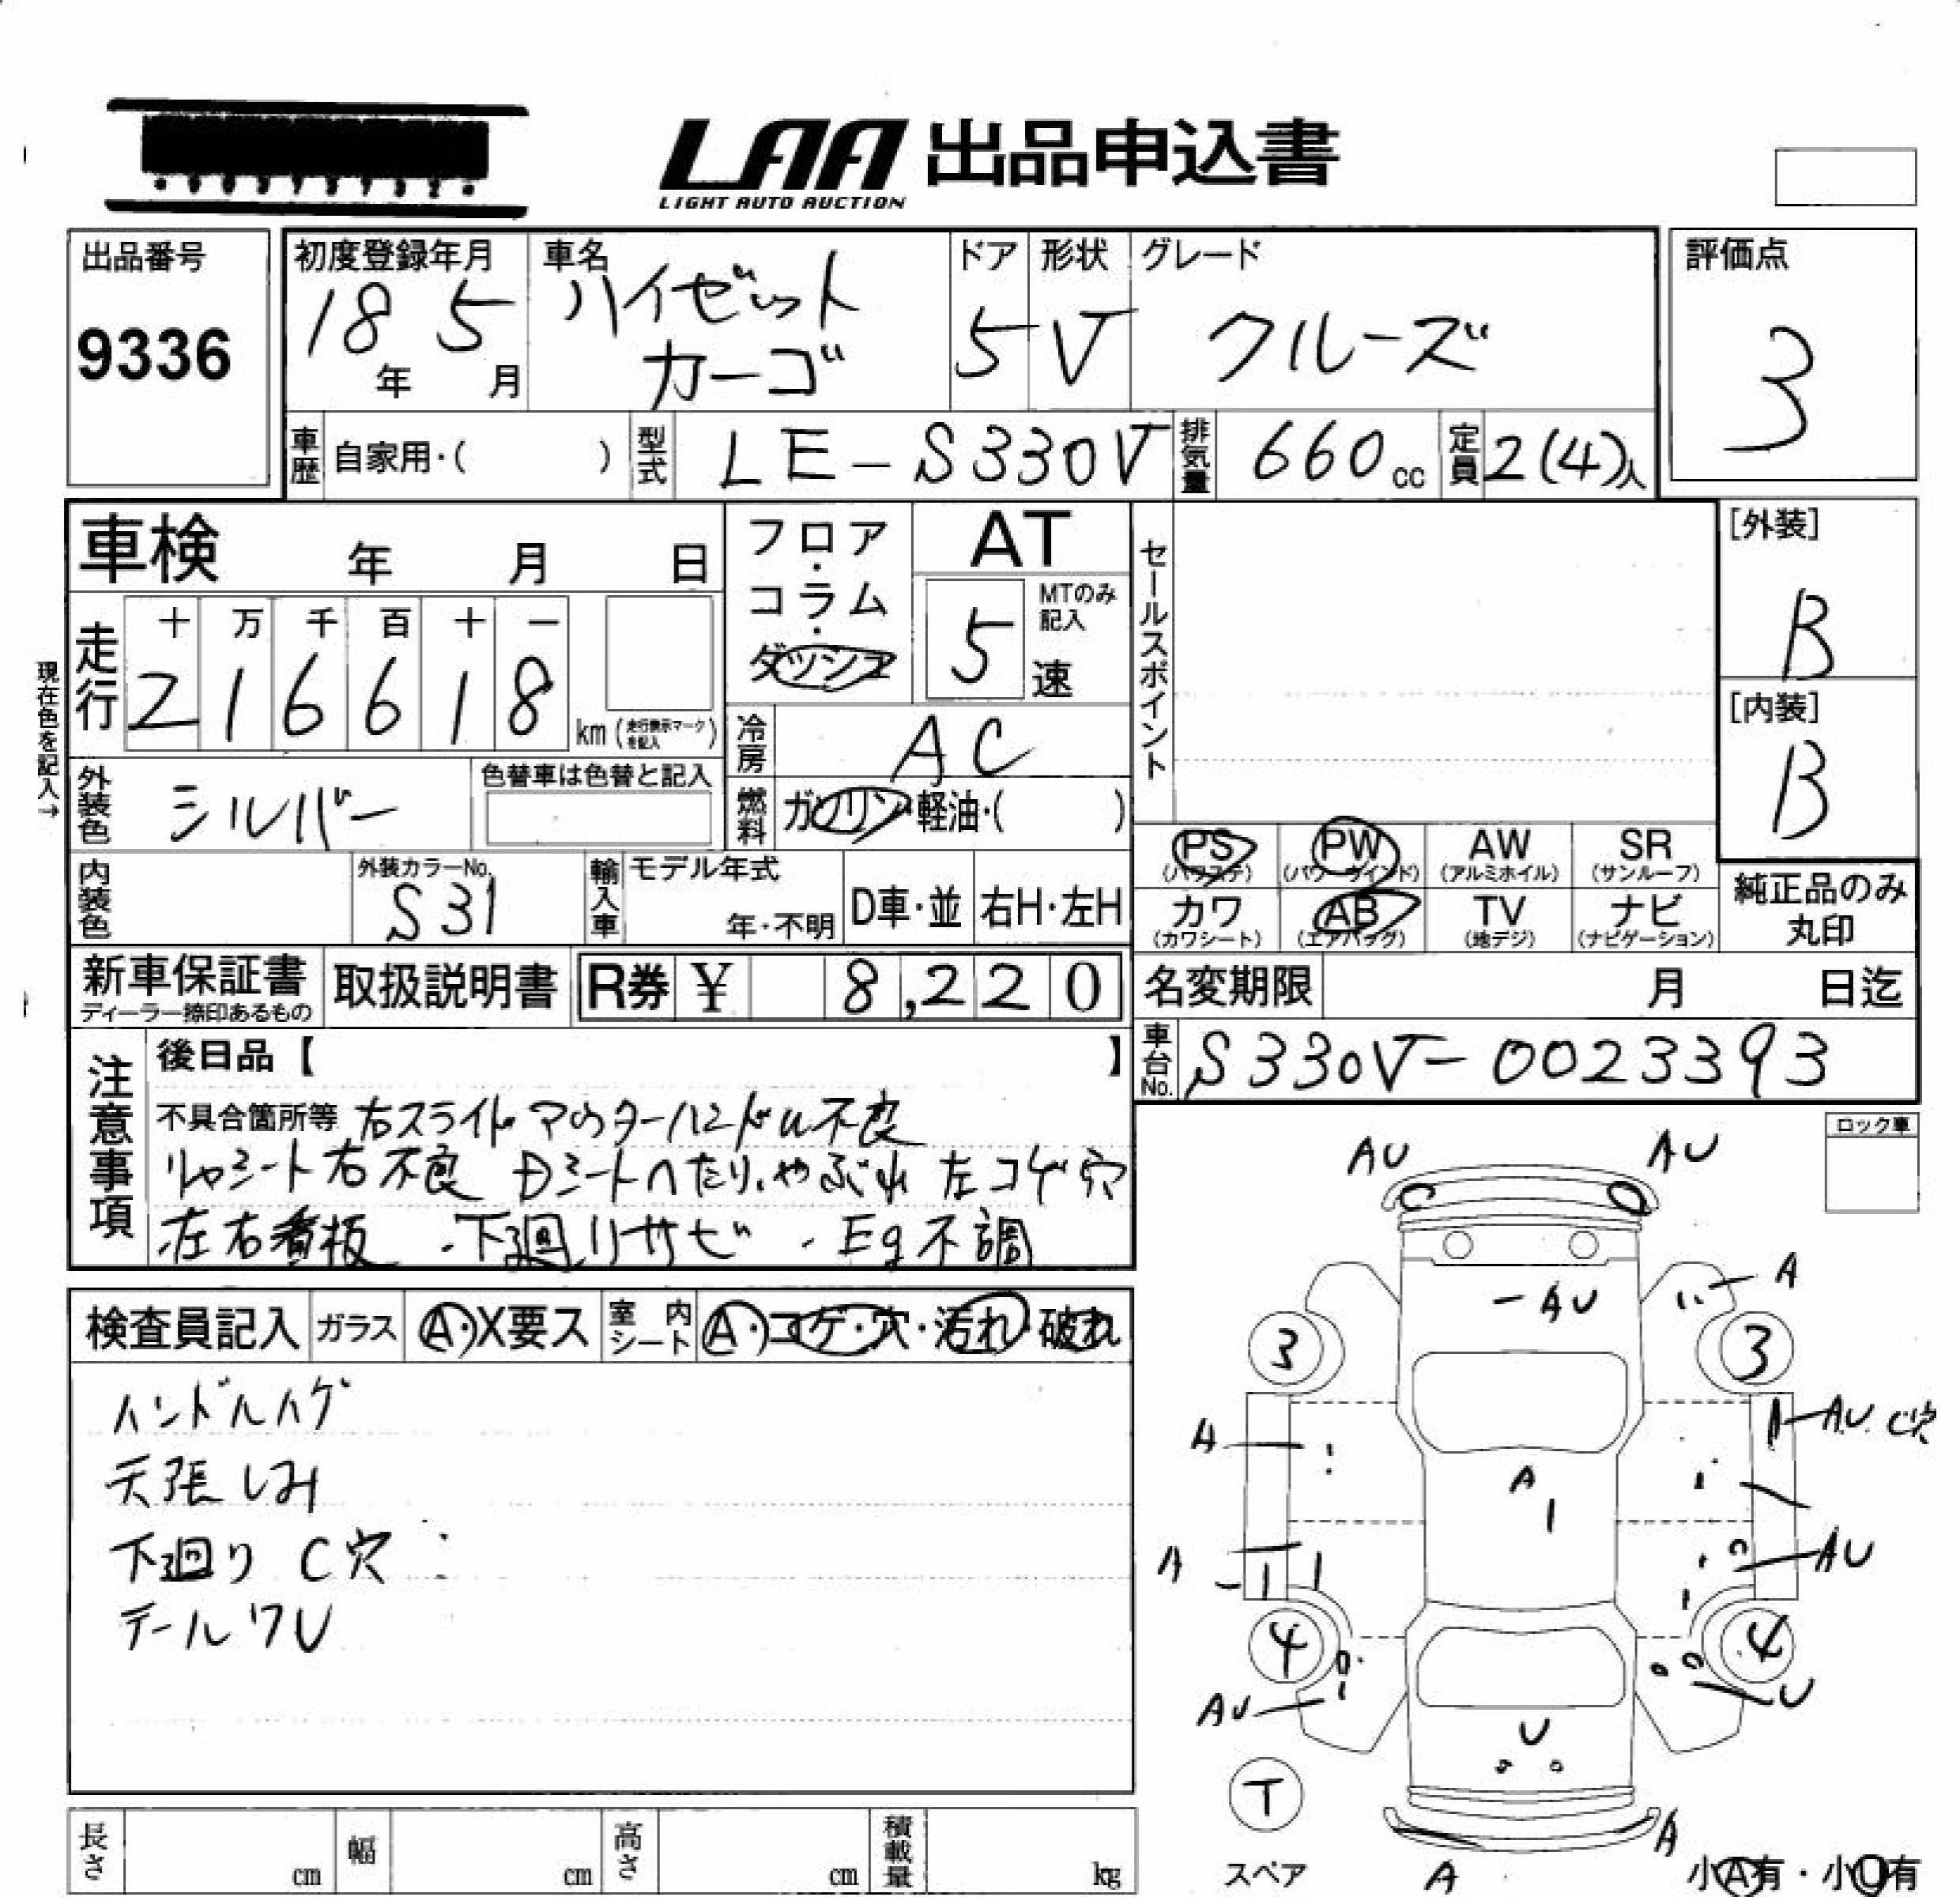 LAA 出品申込書
LIGHT AUTO AUCTION
出品番号
9336
初度登録年月
18年 5月
車名
ハイゼット
カーゴ
ドア
5
形状
V
グレード
クルーズ
評価点
3
車歴 自家用・( )
型式 LE-S330V
排気量 660cc
定員 2(4)人
車検 年 月 日
フロア・コラム・ダッシュ
AT
5速
MTのみ記入
セールスポイント
[外装]
B
[内装]
B
現在色を記入→
走行
十 万 千 百 十 一
2 1 6 6 1 8
km (走行表示マークを記入)
冷房 AC
外装色 シルバー
色替車は色替と記入
燃料 ガソリン・軽油・( )
PS (パワステ)
PW (パワーウインド)
AW (アルミホイル)
SR (サンルーフ)
内装色
外装カラーNo.
S31
輸入車
モデル年式
年・不明
D車・並
右H・左H
カワ (カワシート)
AB (エアバッグ)
TV (地デジ)
ナビ (ナビゲーション)
純正品のみ
丸印
新車保証書
ディーラー捺印あるもの
取扱説明書
R券 ¥ 8,220
名変期限 月 日迄
車台No. S330V-0023393
注意事項
後日品【 】
不具合箇所等 右スライドアウターハンドル不良
リヤシート右不良 Dシートへたり、やぶれ 左コゲ穴
左右看板 ・下廻りサビ ・Eg不調
ロック車
検査員記入 ガラス A・X要ス 室内シート A・コゲ・穴・汚れ・破れ
ハンドルハゲ
天張しみ
下廻り C穴
テールワレ
AU AU
A
AU
3 3
A
AU C穴
A
A
AU
4 4
AU
U
U
T
スペア
A
A
小A有・小U有
長さ cm
幅 cm
高さ cm
積載量 kg